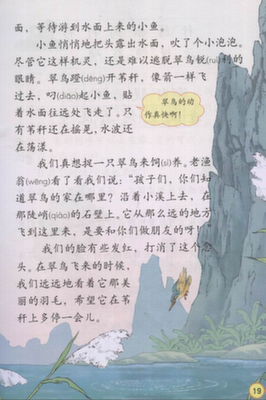 面，等待游到水面上来的小鱼。
小鱼悄悄地把头露出水面，吹了个小泡泡。
尽管它这样机灵，还是难以逃脱翠鸟锐(ruì)利的
眼睛。翠鸟蹬(dēng)开苇秆，像箭一样飞
过去，叼(diāo)起小鱼，贴
着水面往远处飞走了。只
有苇秆还在摇晃，水波还
在荡漾。
翠鸟的动
作真快啊！
我们真想捉一只翠鸟来饲(sì)养。老渔
翁(wēng)看了看我们说：“孩子们，你们知
道翠鸟的家在哪里？沿着小溪上去，在
那陡峭(qiào)的石壁上。它从那么远的地方
飞到这里来，是要和你们做朋友的呀！”
我们的脸有些发红，打消了这个念
头。在翠鸟飞来的时候，
我们远远地看着它那美
丽的羽毛，希望它在苇
秆上多停一会儿。
19